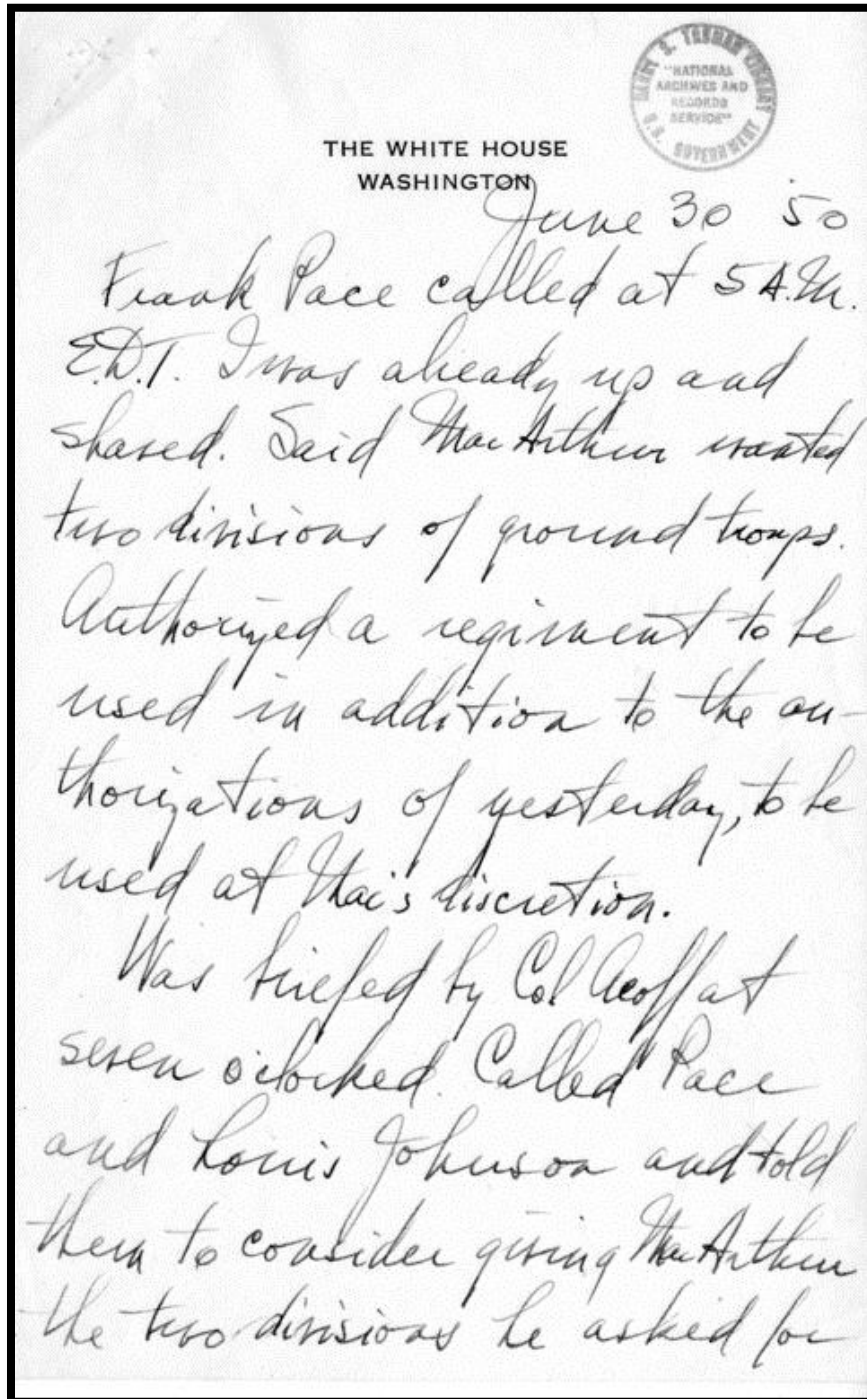 HARRY S. TRUMAN LIBRARY
"NATIONAL
ARCHIVES AND
RECORDS
SERVICE"
U.S. GOVERNMENT
THE WHITE HOUSE
WASHINGTON
June 30 '50
Frank Pace called at 5 A.M.
E.D.T. I was already up and
shaved. Said MacArthur wanted
two divisions of ground troops.
Authorized a regiment to be
used in addition to the au-
thorizations of yesterday, to be
used at Mac's discretion.
Was briefed by Col Acoff at
seven o'clocked. Called Pace
and Louis Johnson and told
them to consider giving MacArthur
the two divisions he asked for